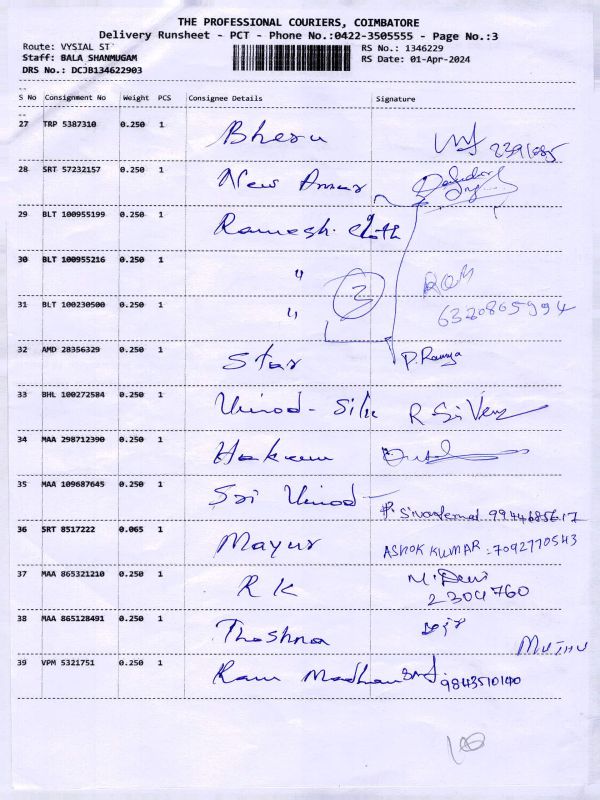 THE PROFESSIONAL COURIERS, COIMBATORE
Delivery Runsheet - PCT - Phone No.:0422-3505555 - Page No.:3
Route: VYSIAL ST RS No.: 1346229
Staff: BALA SHANMUGAM RS Date: 01-Apr-2024
DRS No.: DCJB134622903
S No Consignment No Weight PCS Consignee Details Signature
27 TRP 5387310 0.250 1
28 SRT 57232157 0.250 1 New
29 BLT 100955199 0.250 1 Ramesh cloth
30 BLT 100955216 0.250 1 "
3
31 BLT 100230500 0.250 1 "
32 AMD 28356329 0.250 1 Star P. Ramya
33 BHL 100272584 0.250 1 Vinod - Silk
34 MAA 298712390 0.250 1
35 MAA 109687645 0.250 1 Sri Vinod
36 SRT 8517222 0.065 1 Mayur ASHOK KUMAR : 7092770543
37 MAA 865321210 0.250 1 R K M. Devi
2304760
38 MAA 865128491 0.250 1
MUTHU
39 VPM 5321751 0.250 1 Ram 9843510140